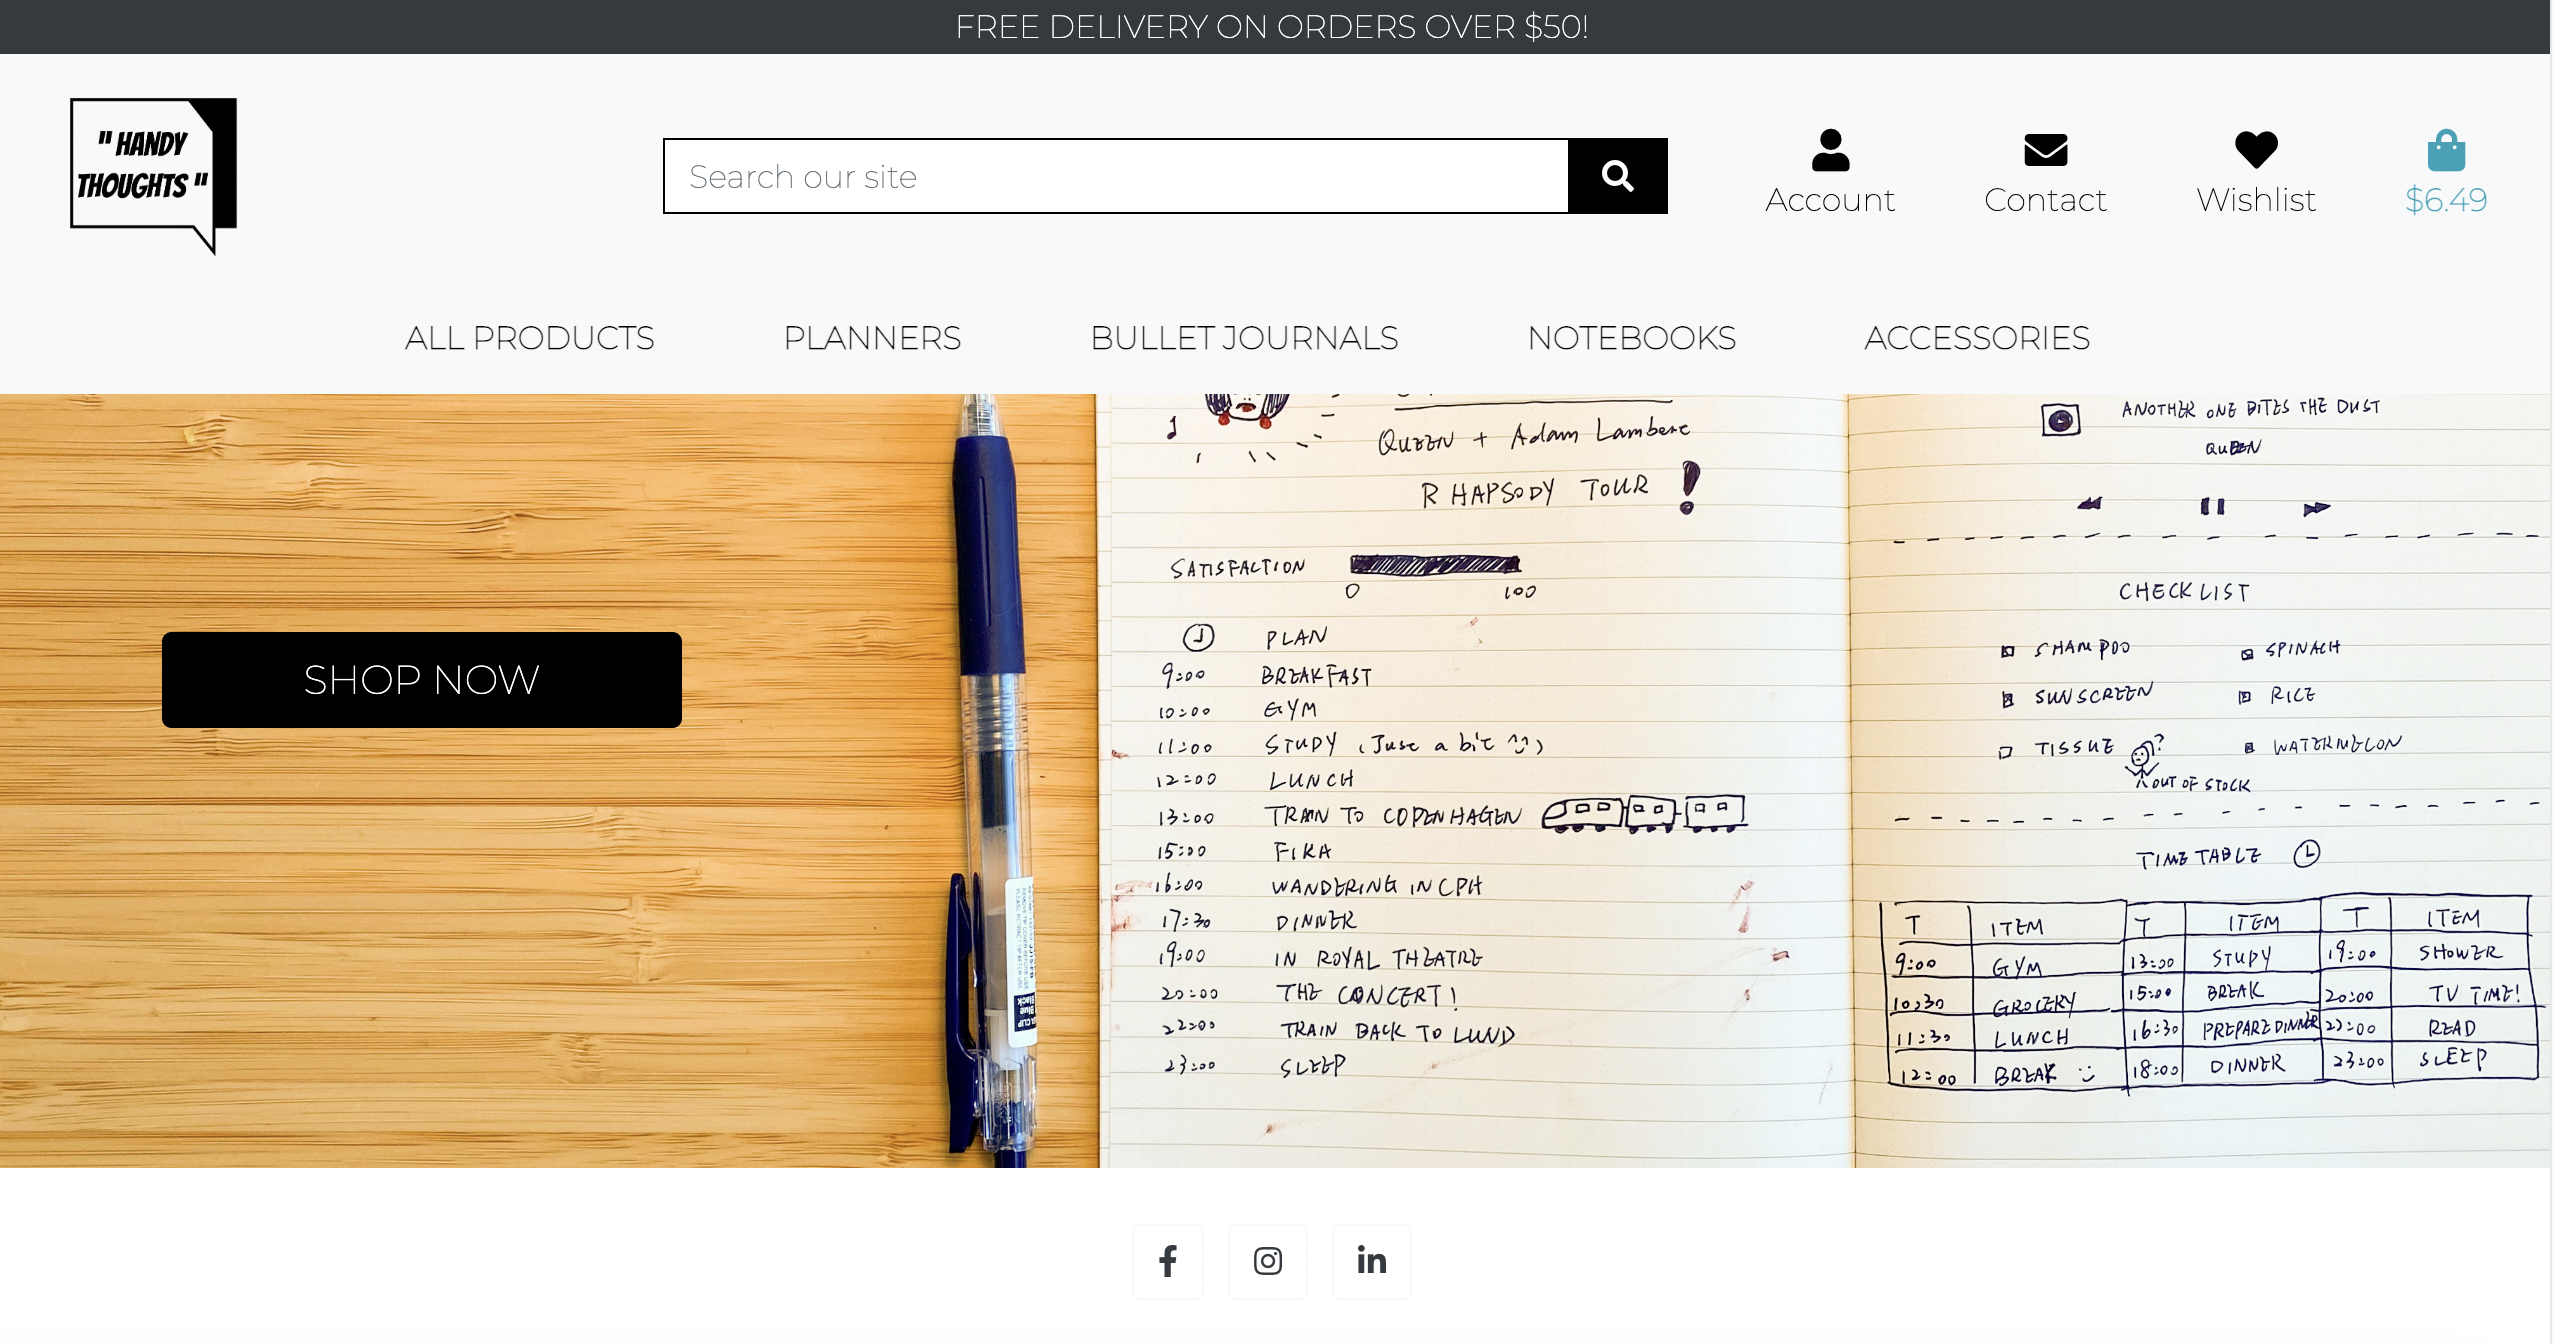 FREE DELIVERY ON ORDERS OVER $50!
" HANDY
THOUGHTS "
Search our site
Account
Contact
Wishlist
$6.49
ALL PRODUCTS
PLANNERS
BULLET JOURNALS
NOTEBOOKS
ACCESSORIES
SHOP NOW
Black
Blue
QUEEN + Adam Lambert
RHAPSODY TOUR !
SATISFACTION
0 100
PLAN
9:00 BREAKFAST
10:00 GYM
11:00 STUDY (Just a bit ^^)
12:00 LUNCH
13:00 TRAIN TO COPENHAGEN
15:00 FIKA
16:00 WANDERING IN CPH
17:30 DINNER
19:00 IN ROYAL THEATRE
20:00 THE CONCERT!
22:00 TRAIN BACK TO LUND
23:00 SLEEP
ANOTHER ONE BITES THE DUST
QUEEN
CHECK LIST
SHAMPOO SPINACH
SUNSCREEN RICE
TISSUE ? WATERMELON
OUT OF STOCK
TIME TABLE
T ITEM T ITEM T ITEM
9:00 GYM 13:00 STUDY 19:00 SHOWER
10:30 GROCERY 15:00 BREAK 20:00 TV TIME!
11:30 LUNCH 16:30 PREPARE DINNER 22:00 READ
12:00 BREAK 18:00 DINNER 23:00 SLEEP
f
in